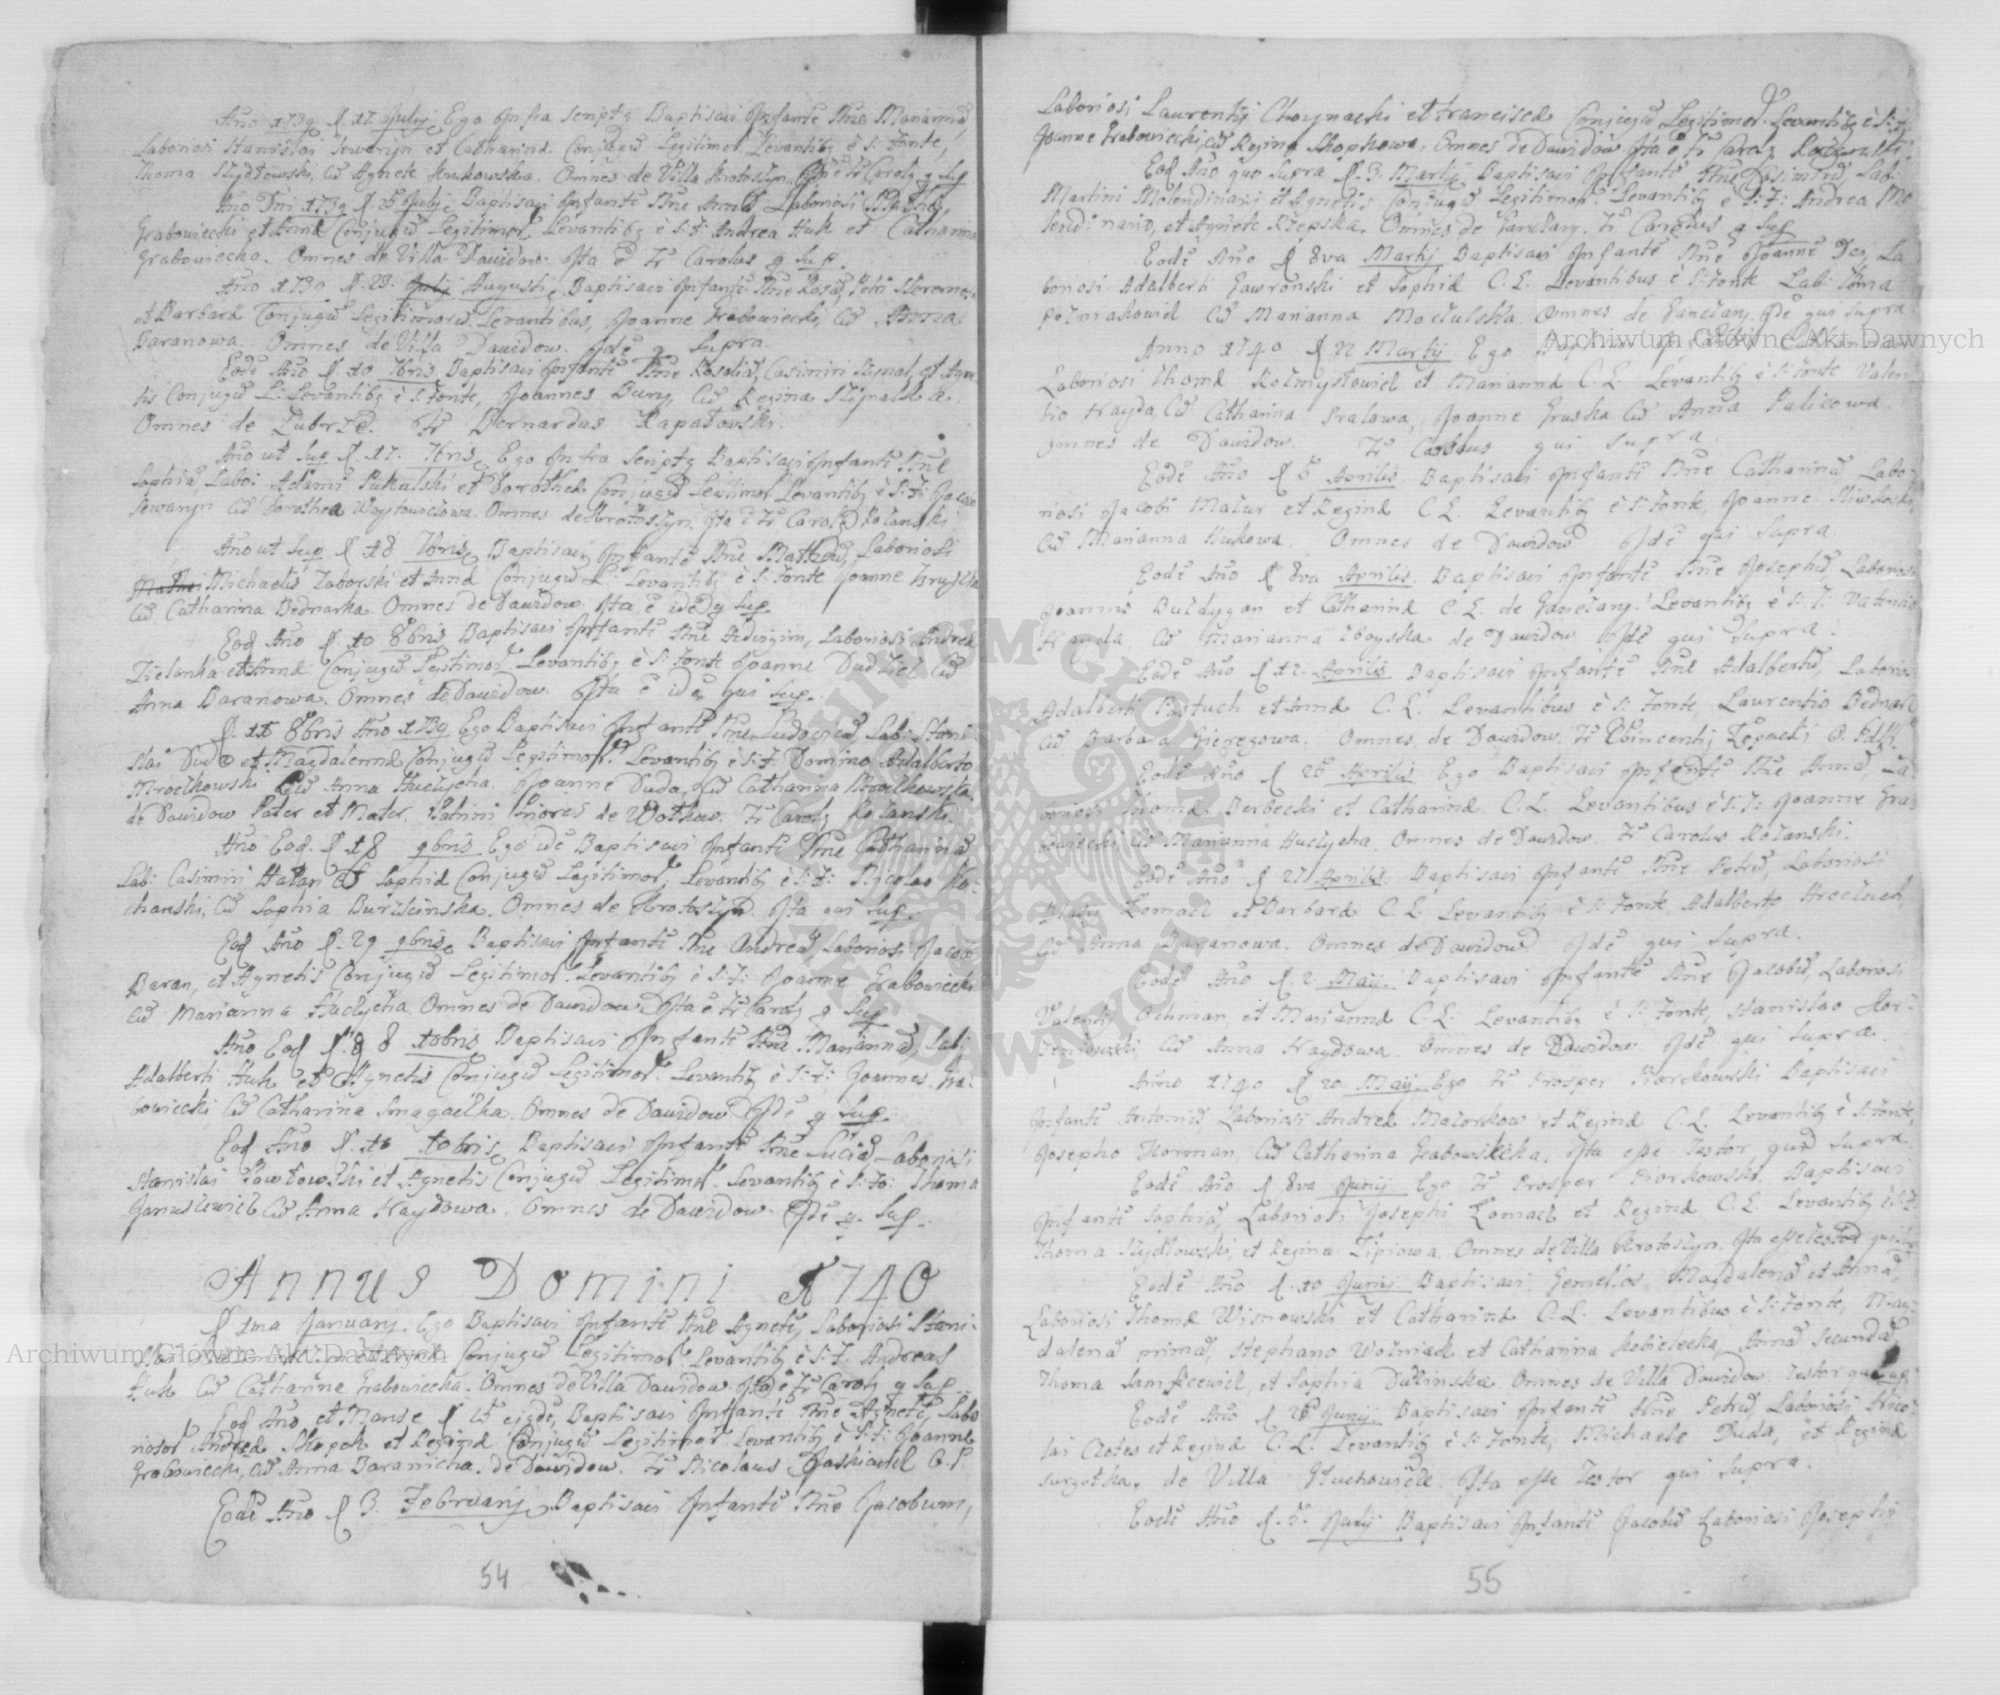 Año 1739 d. 17 July Ego Infra scriptq Baptisavi Infantē Nñe Mariannā
Laboriosi Stanislai Seweryn et Catharinæ Conjugū Legitimoř Levantibq è S: Fonte,
Thoma Szydłowski, cū Agnete Krukowska. Omnes de Villa Krotoszyn. Fr Carolq q Sup
Año Dñi 1739 d 26 July Baptisavi Infantē Nñe Annā Laboriosi
Grabowiecki et Annæ Conjugū Legitimoř Levantibq è S: F: Andrea Huk et Catharina
Grabowiecka. Omnes de Villa Dawidow. Ita ē Fr Carolus q Sup.
Año 1739 d. 23. Augusti, Baptisavi Infantē Nñe Rosā, Petri
et Barbaræ Conjugū Legitimorū. Levantibus, Joanne Grabowiecki, cū Anna
Baranowa. Omnes de Villa Dawidow. Idē q Supra.
Eodē Año d. 10 7bris Baptisavi Infantē Nñe Rosaliā, Casimiri et Agne
tis Conjugū L: Levantibq è S: Fonte, Joannes Bury, cū Regina
Omnes de Zubrze. Fr Bernardus Kapatowski.
Año ut Sup d. 17. 7bris Ego Infra Scriptq Baptisavi Infantē Nñe
Sophiā, Labo: Adami Pukalski et Dorotheæ Conjugū Legitimoř Levantibq è S: F: Jacobo
Sewaryn cū Dorothea Woytowiczowa. Omnes de Krotoszyn. Ita ē Fr Carolq Rożanski
Año ut Sup d 18 7bris Baptisavi Infantē Nñe Mathæū, Laboriosi
Michaelis Zaborski et Annæ Conjugū L: Levantibq è S: Fonte Joanne
cū Catharina Bednarka. Omnes de Dawidow. Ita ē idē q Sup.
Eod Año d. 10 8bris Baptisavi Infantē Nñe Hedvigim, Laboriosi Andreæ
Zielonka et Annæ Conjugū Legitimoř. Levantibq è S: Fonte Joanne Dudziec cū
Anna Baranowa. Omnes de Dawidow. Ita ē idē qui Sup.
d. 15 8bris Año 1739 Ego Baptisavi Infantē Nñe Ludovicū, Lab: Stani
slai Duda et Magdalenæ Conjugū Legitimoř. Levantibq è S: F: Domino Adalberto
Mroczkowski cū Anna Huczycha. Joanne Duda, cū Catharina Mroczkowska
de Dawidow Pater et Mater. Patrini Priores de Wołkow. Fr Carolq Rożanski.
Año Eod. d 18 9bris Ego idē Baptisavi Infantē Nñe Catharinā
Lab: Casimiri et Sophiæ Conjugū Legitimoř, Levantibq è S: F: Nicolao Ko-
chanski, cū Sophia Burzminska. Omnes de Krotoszyn. Ita qui Sup.
Eod Año d. 29 9bris Baptisavi Infantē Nñe Andreā, Laboriosi Jacobi
Baran, et Agnetis Conjugū Legitimoř. Levantibq è S: F: Joanne Grabowiecki
cū Marianna Huczycha. Omnes de Dawidow Ita ē Fr Carolq q Sup
Año Eod d. 8 10bris Baptisavi Infantē Nñe Mariannā Lab:
Adalberti Huk et Agnetis Conjugū Legitimoř. Levantibq è S: F: Joannes Gra-
bowiecki cū Catharina Smagaczka. Omnes de Dawidow Idē q Sup.
Eod Año d. 10 10bris Baptisavi Infantē Nñe Luciā Laboriosi
Stanislai Pawłowski et Agnetis Conjugū Legitimoř. Levantibq è S: Fo: Thoma
Januszewicz cū Anna Haydowa. Omnes de Dawidow. Idē q. Sup.
Annus Domini 1740
d 1ma January. Ego Baptisavi Infantē Nñe Agnetē, Laboriosi Stani-
Conjugū Legitimoř. Levantibq è S: F: Andreas
Huk cū Catharina Grabowiecka. Omnes de Villa Dawidow. Ita ē Fr Carolq q Sup
Eod Año et Mense d 15 ejqdē, Baptisavi Infantē Nñe Agnetē, Labo
riosoř Andreæ Skopek et Reginæ Conjugū Legitimoř. Levantibq è S: F: Joanne
Grabowiecki, cū Anna Baranicha. de Dawidow. Fr Nicolaus O. P.
Eodē Año d 3. February. Baptisavi Infantē Nñe Jacobum,
54
Laboriosi Laurentij Choynacki et Franciscæ Conjugū Legitimoř. Levantibq è S: F:
Joanne Grabowiecki, cū Regina Skopkowa. Omnes de Dawidow Ita ē Fr
Eod Año quo Supra d. 3. Martij Baptisavi Infantē Nñe Casimirū Lab:
Martini Molendinarij et Agnetis Conjugū Legitimoř. Levantibq è S: F: Andrea Mo
lendinario, et Agnete Rzepska. Omnes de Ganczary. Fr Carolus q Sup
Eodē Año d 8va Martij Baptisavi Infantē Nñe Joannē Dei, La
boriosi Adalberti Gawronski et Sophiæ C. L. Levantibus è S: Fonte Lab: Thoma
Pozniakowicz cū Marianna Moczulska. Omnes de Ganczary. Idē qui Supra.
Anno 1740 d 22 Martij Ego
Laboriosi Thomæ Rozmysłowicz et Mariannæ C. L. Levantibq è S: Fonte Valen
tio Hayda, cū Catharina Pralowa, Joanne Gruska cū Anna Palicowa.
Omnes de Dawidow. Fr Carolus qui Supra.
Eodē Año d 5 Aprilis. Baptisavi Infantē Nñe Catharinā Labo-
riosi Jacobi Mazur et Reginæ C. L. Levantibq è S: Fonte, Joanne
cū Marianna Hukowa. Omnes de Dawidow Idē qui Supra.
Eodē Año d 8va Aprilis. Baptisavi Infantē Nñe Josephū, Laboriosi
Joannis Buldygan et Catharinæ C. L. de Ganczary. Levantibq è S: F: Valentio
Hayda cū Marianna Zboyska de Dawidow. Idē qui Supra.
Eodē Año d 12. Aprilis Baptisavi Infantē Nñe Adalbertū, Laborio
Adalberti Pastuch et Annæ C. L. Levantibus è S: Fonte, Laurentio Bednarz
cū Barbara Giezegowa. Omnes de Dawidow. Fr Vincentij Łepacki
Eodē Año d 26 Aprilis Ego Baptisavi Infantē Nñe Annā, La
boriosi Thomæ Berbecki et Catharinæ C. L. Levantibus è S: F: Joanne Gra
bowiecki cū Marianna Huczycha. Omnes de Dawidow. Fr Carolus Rożanski.
Eodē Año d 27 Aprilis. Baptisavi Infantē Nñe Petrū, Laboriosi
Łomacz et Barbaræ C. L. Levantibq è S: Fonte Adalberto
cū Anna Baranowa. Omnes de Dawidow Idē qui Supra.
Eodē Año d. 2 Maij Baptisavi Infantē Nñe Jacobū, Laboriosi
Valentij Ochman, et Mariannæ C. L: Levantibq è S: Fonte, Stanislao
cū Anna Haydowa. Omnes de Dawidow Idē qui Supra.
Año 1740 d 20 Maij Ego Fr Prosper Piorkowski Baptisavi
Infantē Antoniū, Laboriosi Andreæ Mazorskow et Reginæ C. L. Levantibq è S: Fonte,
Josepho Horman, cū Catharina Grabowiecka. Ita esse Testor, quā Supra.
Eodē Año d 8va Junij Ego Fr Prosper Piorkowski Baptisavi
Infantē Sophiā, Laboriosi Josephi Łomacz et Reginæ C. L. Levantibq è S: F:
Thoma Szydłowski, et Regina Lipiowa. Omnes de Villa Krotoszyn. Ita esse testor qui Sup
Eodē Año d. 10 Junij Baptisavi Gemellos, Magdalenā et Annā,
Laboriosi Thomæ Wisnowski et Catharinæ C. L: Levantibus è S: Fonte, Mag-
dalenā primā, Stephano Wozniak et Catharina Kobielecka, Annā Secundā,
Thoma et Sophia Dulinska Omnes de Villa Dawidow Testor qui Sup
Eodē Año d 26 Junij Baptisavi Infantē Nñe Petrū Laboriosi Nico-
lai et Reginæ C. L. Levantibq è S: Fonte, Michaele Duda, et Regina
de Villa Ita esse Testor qui Supra.
Eodē Año d. 5. July Baptisavi Infantē Jacobū Laboriosi Josephi
55
Archiwum Główne Akt Dawnych
Archiwum Główne Akt Dawnych
ARCHIWUM GŁÓWNE AKT DAWNYCH